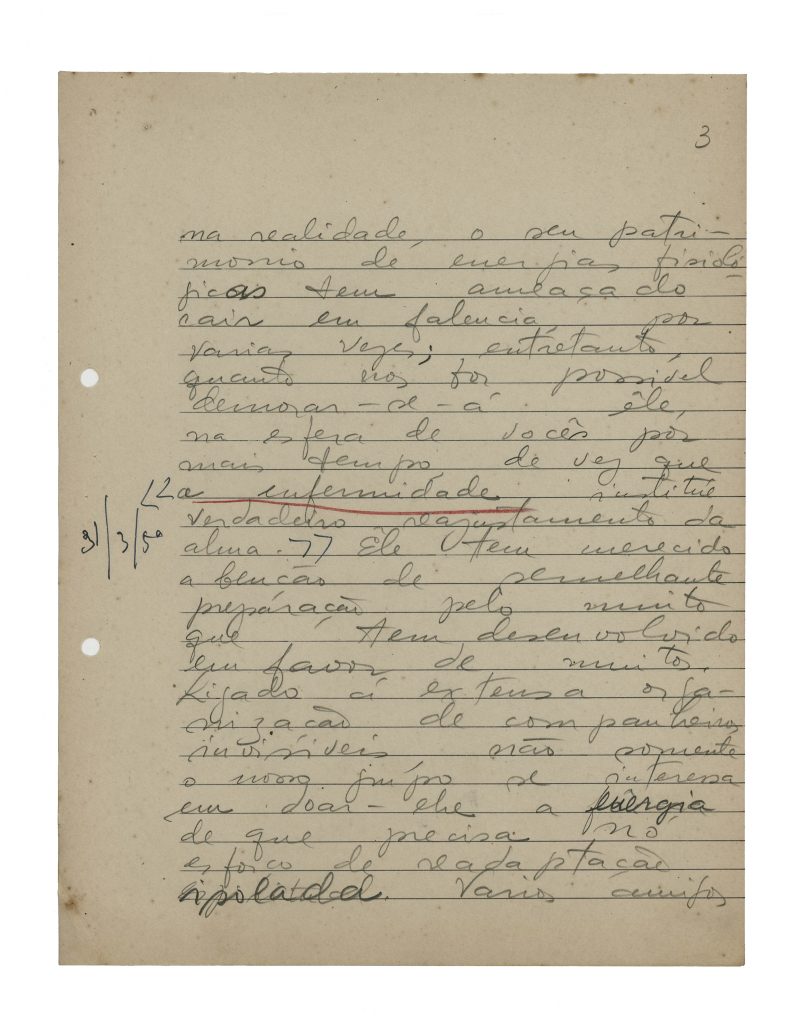 3
na realidade, o seu patri-
monio de energias fisioló-
gicas tem ameaçado
cair em falencia, por
varias vezes; entretanto,
quanto nos for possivel
demorar-se-á êle,
na esfera de vocês por
mais tempo, de vez que
<< a enfermidade institúe
verdadeiro reajustamento da
31/3/50
alma. >> Êle tem merecido
a benção de semelhante
preparação pelo muito
que tem desenvolvido
em favor de muitos.
Ligado á extensa orga-
nização de companheiros
invisiveis, não somente
o nosso grupo se interessa
em doar-lhe a energia
de que precisa no
esforço de readaptação
Varios amigos